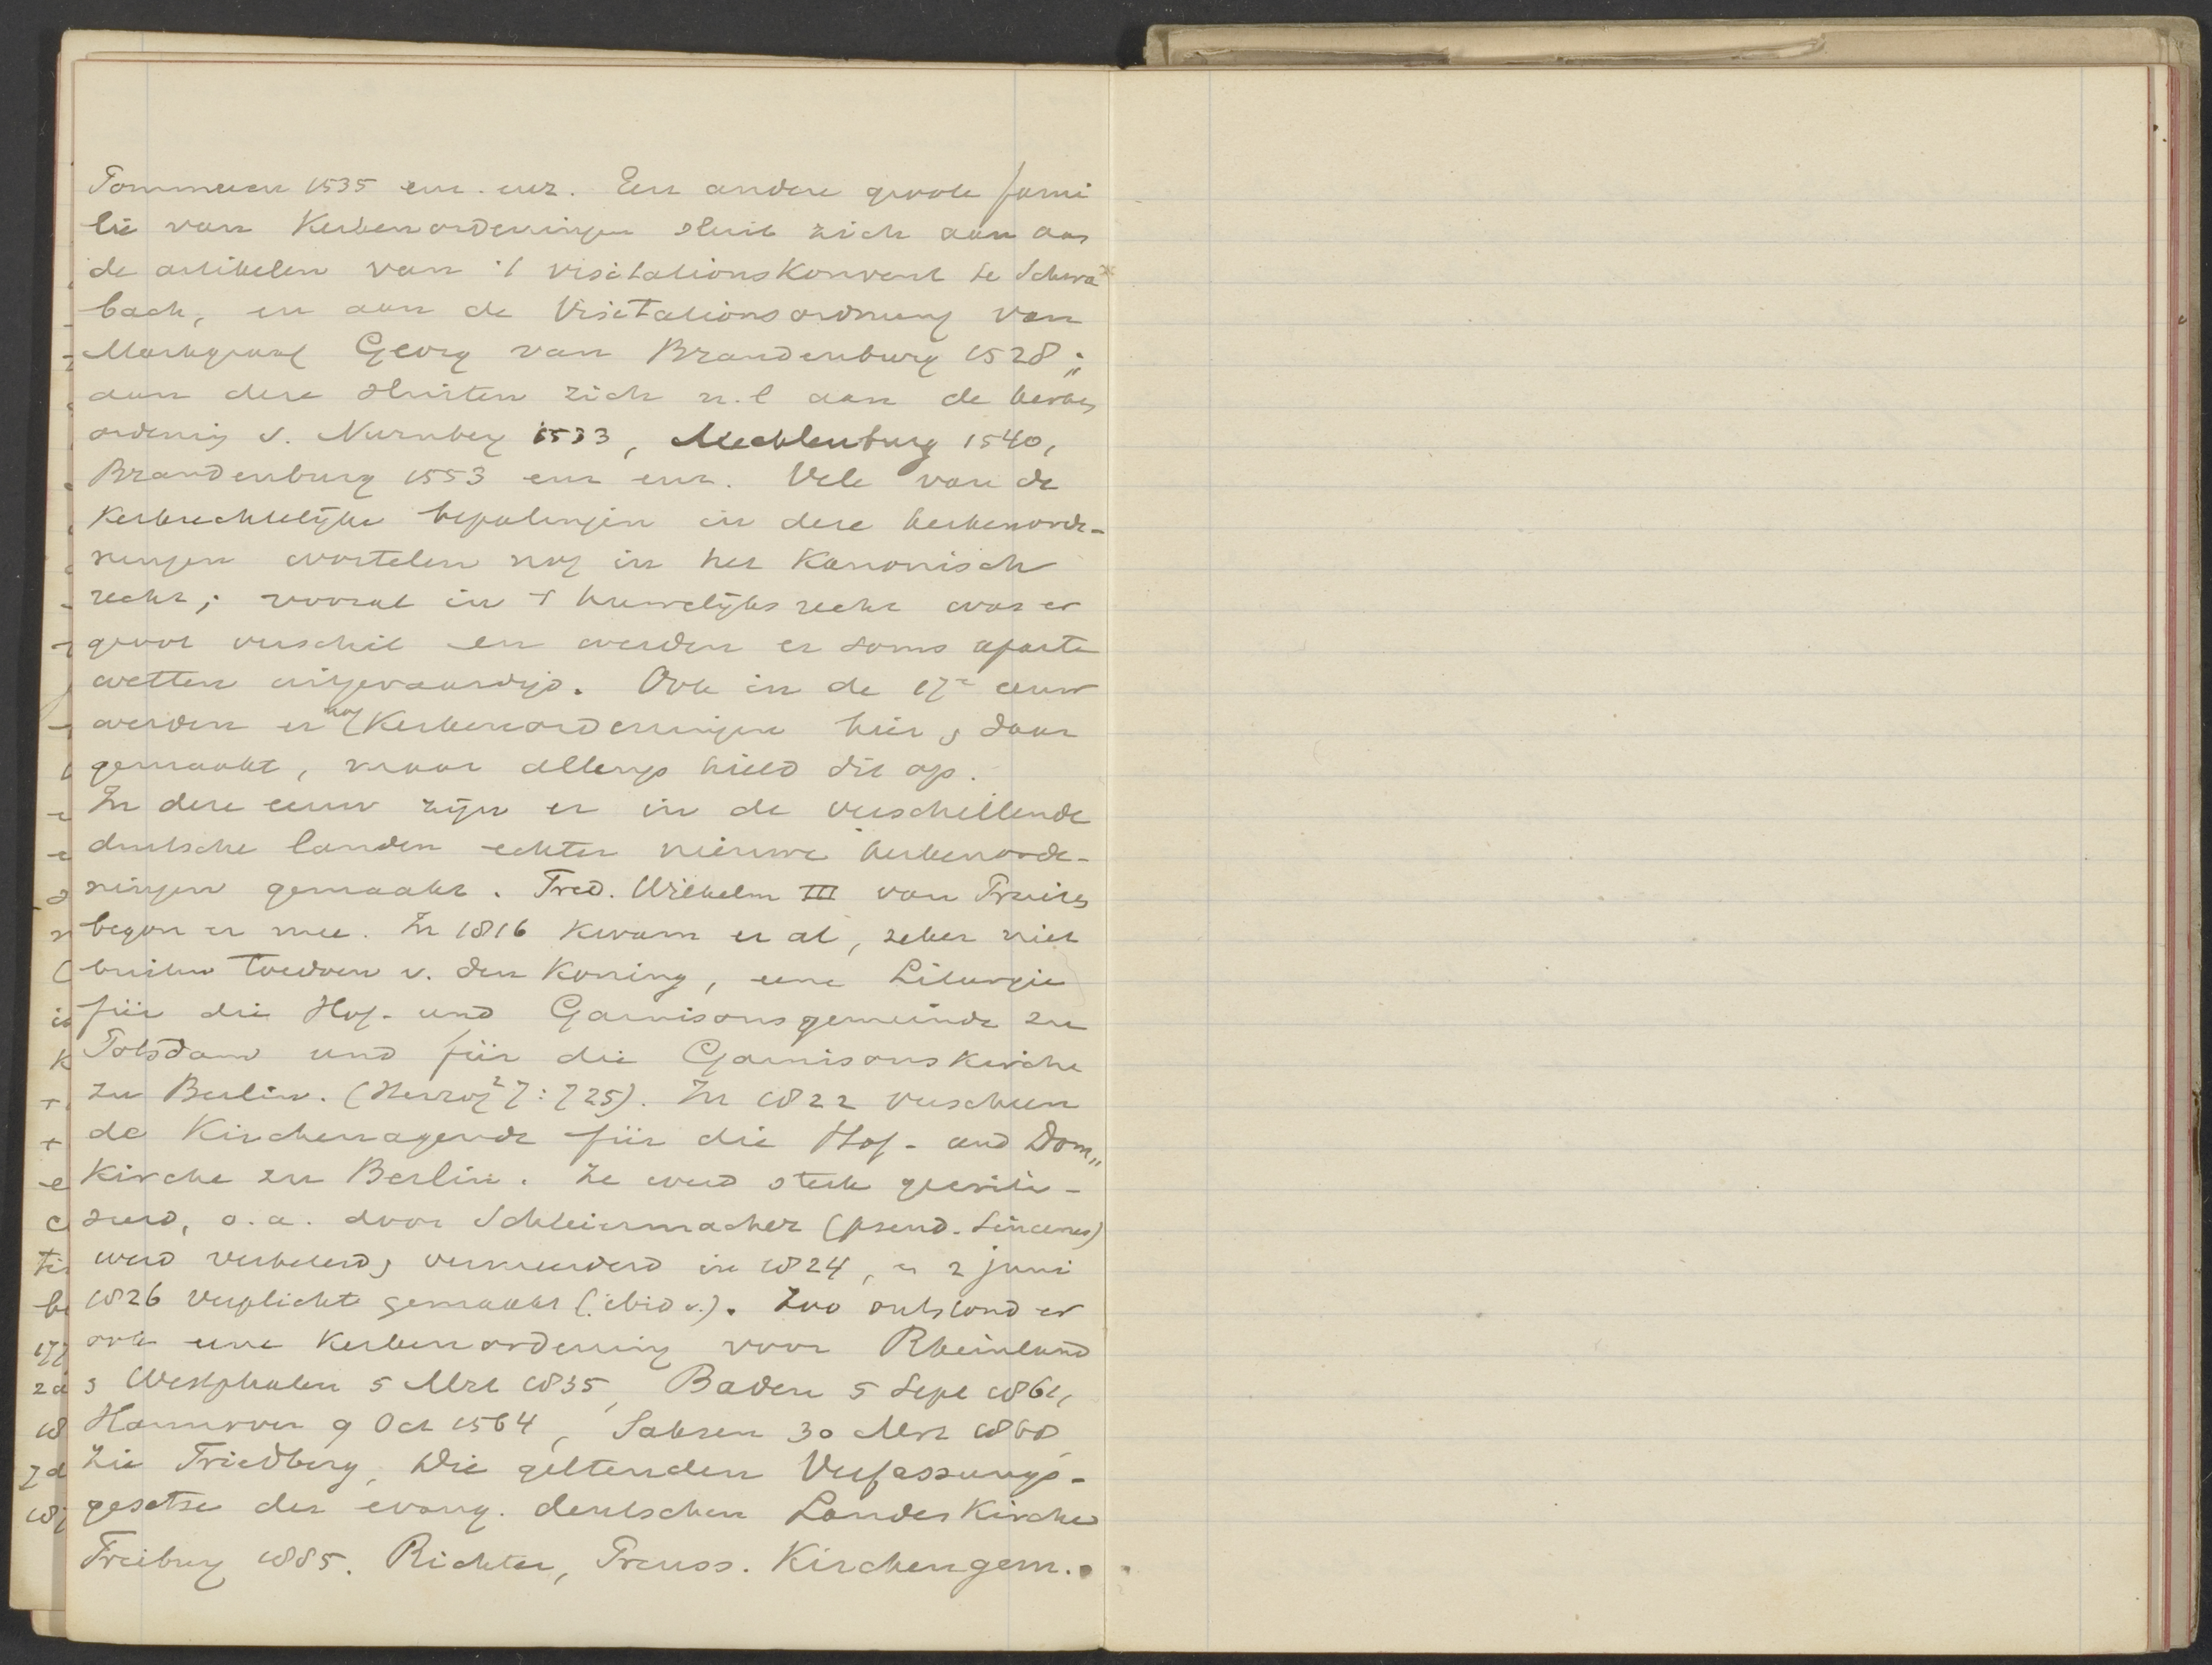 Pommeren 1535 enz. enz. Een andere groote fami
lie van Kerkenordeningen sluit zich aan aan
de artikelen van 't visitationskonvent te Schwa
bach, en aan de Visitationsordnung van
Markgraaf Georg van Brandenburg 1528;
aan deze sluiten zich n.l aan de kerken
ordening v. Nurnberg 1533, Mecklenburg 1540,
Brandenburg 1553 enz enz. Vele van de
Kerkrechtelijke bepalingen in deze kerkenorde-
ningen wortelen nog in het Kanonisch
recht; vooral in 't huwelijks recht was er
groot verschil en werden er soms aparte
wetten uitgevaardigd. Ook in de 17e eeuw
werden er nog Kerkenordeningen hier & daar
gemaakt, maar allengs hield dit op.
In deze eeuw zijn er in de verschillende
duitsche landen echter nieuwe kerkenorde-
ningen gemaakt. Fred. Wilhelm III van Pruisen
begon er mee. In 1816 kwam er al, zeker niet
buiten toedoen v. den Koning, eene Liturgie
für die Hof- und Garnisonsgemeinde zu
Potsdam und für die Garnisonskirche
zu Berlin. (Herzog² 7:725). In 1822 verscheen
de Kirchenagende für die Hof- und Dom„
Kirche zu Berlin. Ze werd sterk gecriti-
seerd, o.a. door Schleiermacher (pseud. Sincerus)
werd verbeterd & vermeerderd in 1824, en 2 juni
1826 verplicht gemaakt (ibid.). Zoo ontstond er
ook eene Kerkenordening voor Rheinland
& Westphalen 5 Mrt 1835, Baden 5 Sept 1861,
Hannover 9 Oct 1564, Saksen 30 Mrt 1868
Zie Friedberg, Die geltenden Verfassungs-
gesetze der evang. deutschen Landeskirchen
Freiburg 1885. Richter, Preuss. Kirchengem.